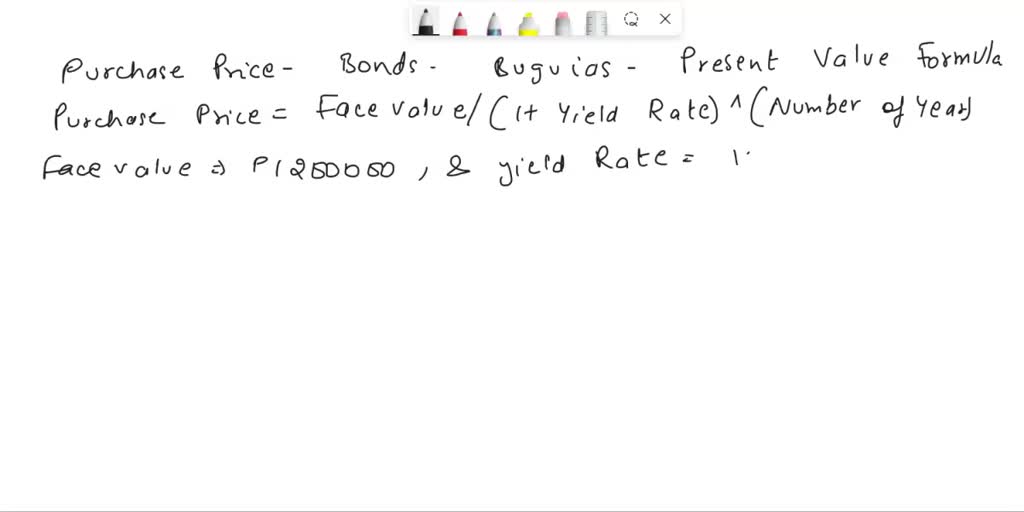 Purchase Price - Bonds - Buguias - Present Value Formula
Purchase Price = Face value / (1+ Yield Rate) ^ (Number of Years
Face value ⇒ P1250000 , & yield Rate = 1.